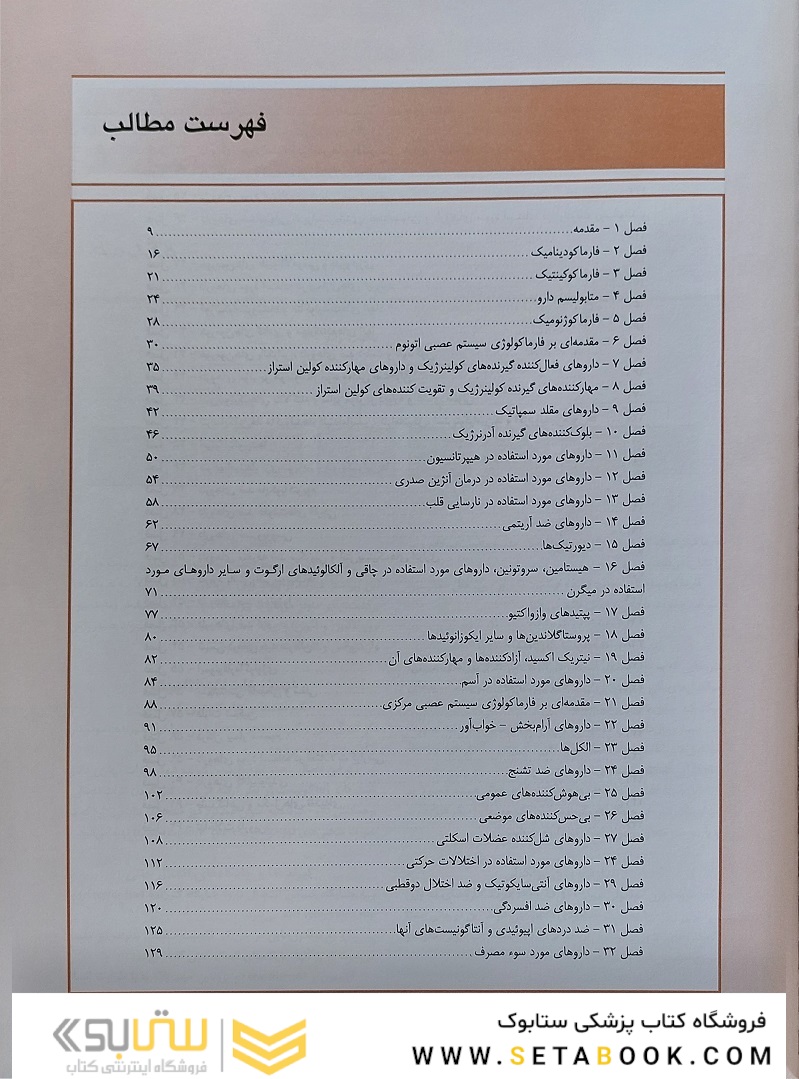 فهرست مطالب
فصل ۱ – مقدمه ........ ۹
فصل ۲ – فارماکودینامیک ........ ۱۶
فصل ۳ – فارماکوکینتیک ........ ۲۱
فصل ۴ – متابولیسم دارو ........ ۲۴
فصل ۵ – فارماکوژنومیک ........ ۲۸
فصل ۶ – مقدمه‌ای بر فارماکولوژی سیستم عصبی اتونوم ........ ۳۰
فصل ۷ – داروهای فعال‌کننده گیرنده‌های کولینرژیک و داروهای مهارکننده کولین استراز ........ ۳۵
فصل ۸ – مهارکننده‌های گیرنده کولینرژیک و تقویت کننده‌های کولین استراز ........ ۳۹
فصل ۹ – داروهای مقلد سمپاتیک ........ ۴۲
فصل ۱۰ – بلوک‌کننده‌های گیرنده آدرنرژیک ........ ۴۶
فصل ۱۱ – داروهای مورد استفاده در هیپرتانسیون ........ ۵۰
فصل ۱۲ – داروهای مورد استفاده در درمان آنژین صدری ........ ۵۴
فصل ۱۳ – داروهای مورد استفاده در نارسایی قلب ........ ۵۸
فصل ۱۴ – داروهای ضد آریتمی ........ ۶۲
فصل ۱۵ – دیورتیک‌ها ........ ۶۷
فصل ۱۶ – هیستامین، سروتونین، داروهای مورد استفاده در چاقی و آلکالوئیدهای ارگوت و سایر داروهای مورد
استفاده در میگرن ........ ۷۱
فصل ۱۷ – پپتیدهای وازواکتیو ........ ۷۷
فصل ۱۸ – پروستاگلاندین‌ها و سایر ایکوزانوئیدها ........ ۸۰
فصل ۱۹ – نیتریک اکسید، آزادکننده‌ها و مهارکننده‌های آن ........ ۸۲
فصل ۲۰ – داروهای مورد استفاده در آسم ........ ۸۴
فصل ۲۱ – مقدمه‌ای بر فارماکولوژی سیستم عصبی مرکزی ........ ۸۸
فصل ۲۲ – داروهای آرام‌بخش – خواب‌آور ........ ۹۱
فصل ۲۳ – الکل‌ها ........ ۹۵
فصل ۲۴ – داروهای ضد تشنج ........ ۹۸
فصل ۲۵ – بی‌هوش‌کننده‌های عمومی ........ ۱۰۲
فصل ۲۶ – بی‌حس‌کننده‌های موضعی ........ ۱۰۶
فصل ۲۷ – داروهای شل‌کننده عضلات اسکلتی ........ ۱۰۸
فصل ۲۴ – داروهای مورد استفاده در اختلالات حرکتی ........ ۱۱۲
فصل ۲۹ – داروهای آنتی‌سایکوتیک و ضد اختلال دوقطبی ........ ۱۱۶
فصل ۳۰ – داروهای ضد افسردگی ........ ۱۲۰
فصل ۳۱ – ضد دردهای اپیوئیدی و آنتاگونیست‌های آنها ........ ۱۲۵
فصل ۳۲ – داروهای مورد سوء مصرف ........ ۱۲۹
فروشگاه کتاب پزشکی ستابوک
WWW.SETABOOK.COM
ستابوک
فروشگاه اینترنتی کتاب